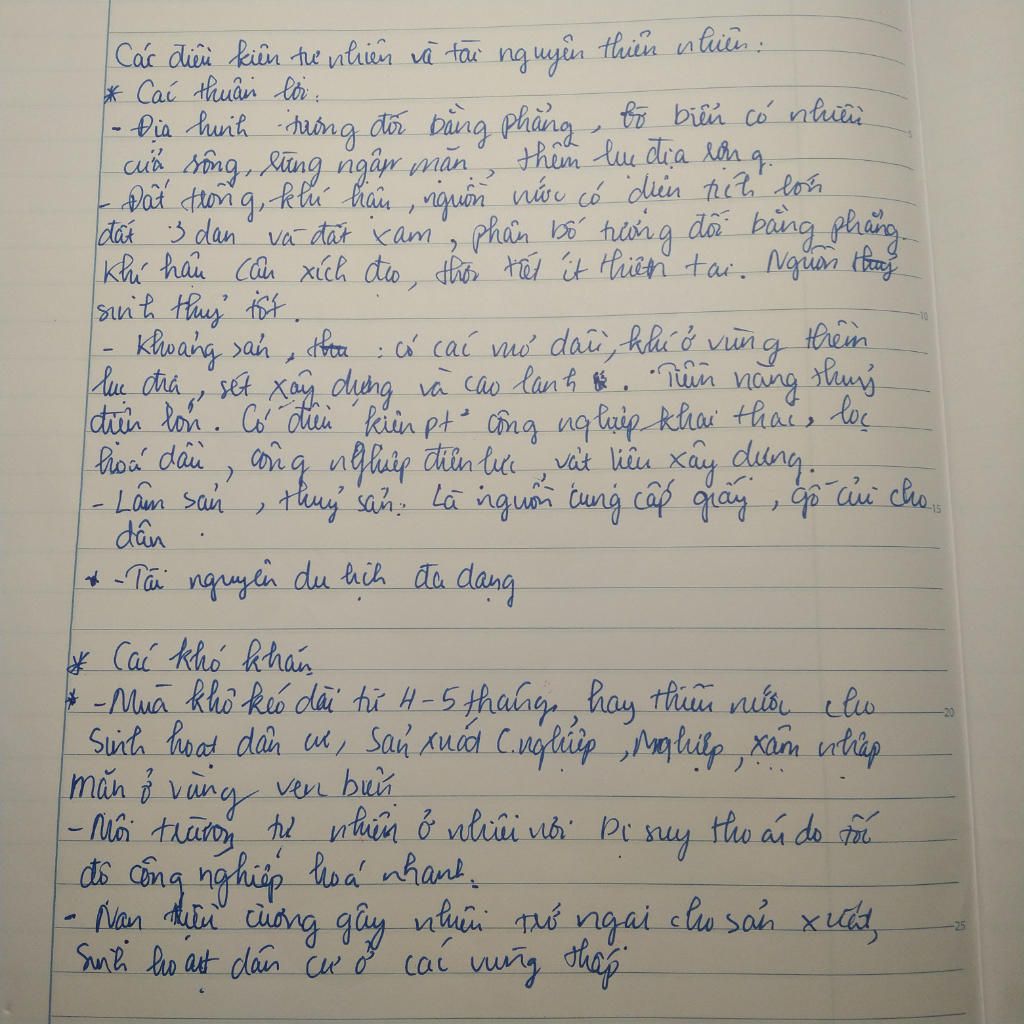 Các điều kiện tự nhiên và tài nguyên thiên nhiên:
* Các thuận lợi:
- Địa hình tương đối bằng phẳng, bờ biển có nhiều
cửa sông, rừng ngập mặn, thềm lục địa rộng.
- Đất trồng, khí hậu, nguồn nước có diện tích lớn
đất 3 dan và đất xám, phân bố tương đối bằng phẳng.
Khí hậu cận xích đạo, thời tiết ít thiên tai. Nguồn
sinh thuỷ tốt.
- Khoáng sản, : có các mỏ dầu, khí ở vùng thềm
lục địa, sét xây dựng và cao lanh. Tiềm năng thuỷ
điện lớn. Có điều kiện pt² công nghiệp khai thác, lọc
hoá dầu, công nghiệp điện lực, vật liệu xây dựng.
- Lâm sản, thuỷ sản: Là nguồn cung cấp giấy, gỗ củi cho
dân.
* - Tài nguyên du lịch đa dạng
* Các khó khăn
* - Mùa khô kéo dài từ 4-5 tháng, hay thiếu nước cho
Sinh hoạt dân cư, Sản xuất C.nghiệp, Nnghiệp, xâm nhập
mặn ở vùng ven biển
- Môi trường tự nhiên ở nhiều nơi bị suy thoái do tốc
độ công nghiệp hoá nhanh.
- Nạn triều cường gây nhiều trở ngại cho sản xuất,
sinh hoạt dân cư ở các vùng thấp